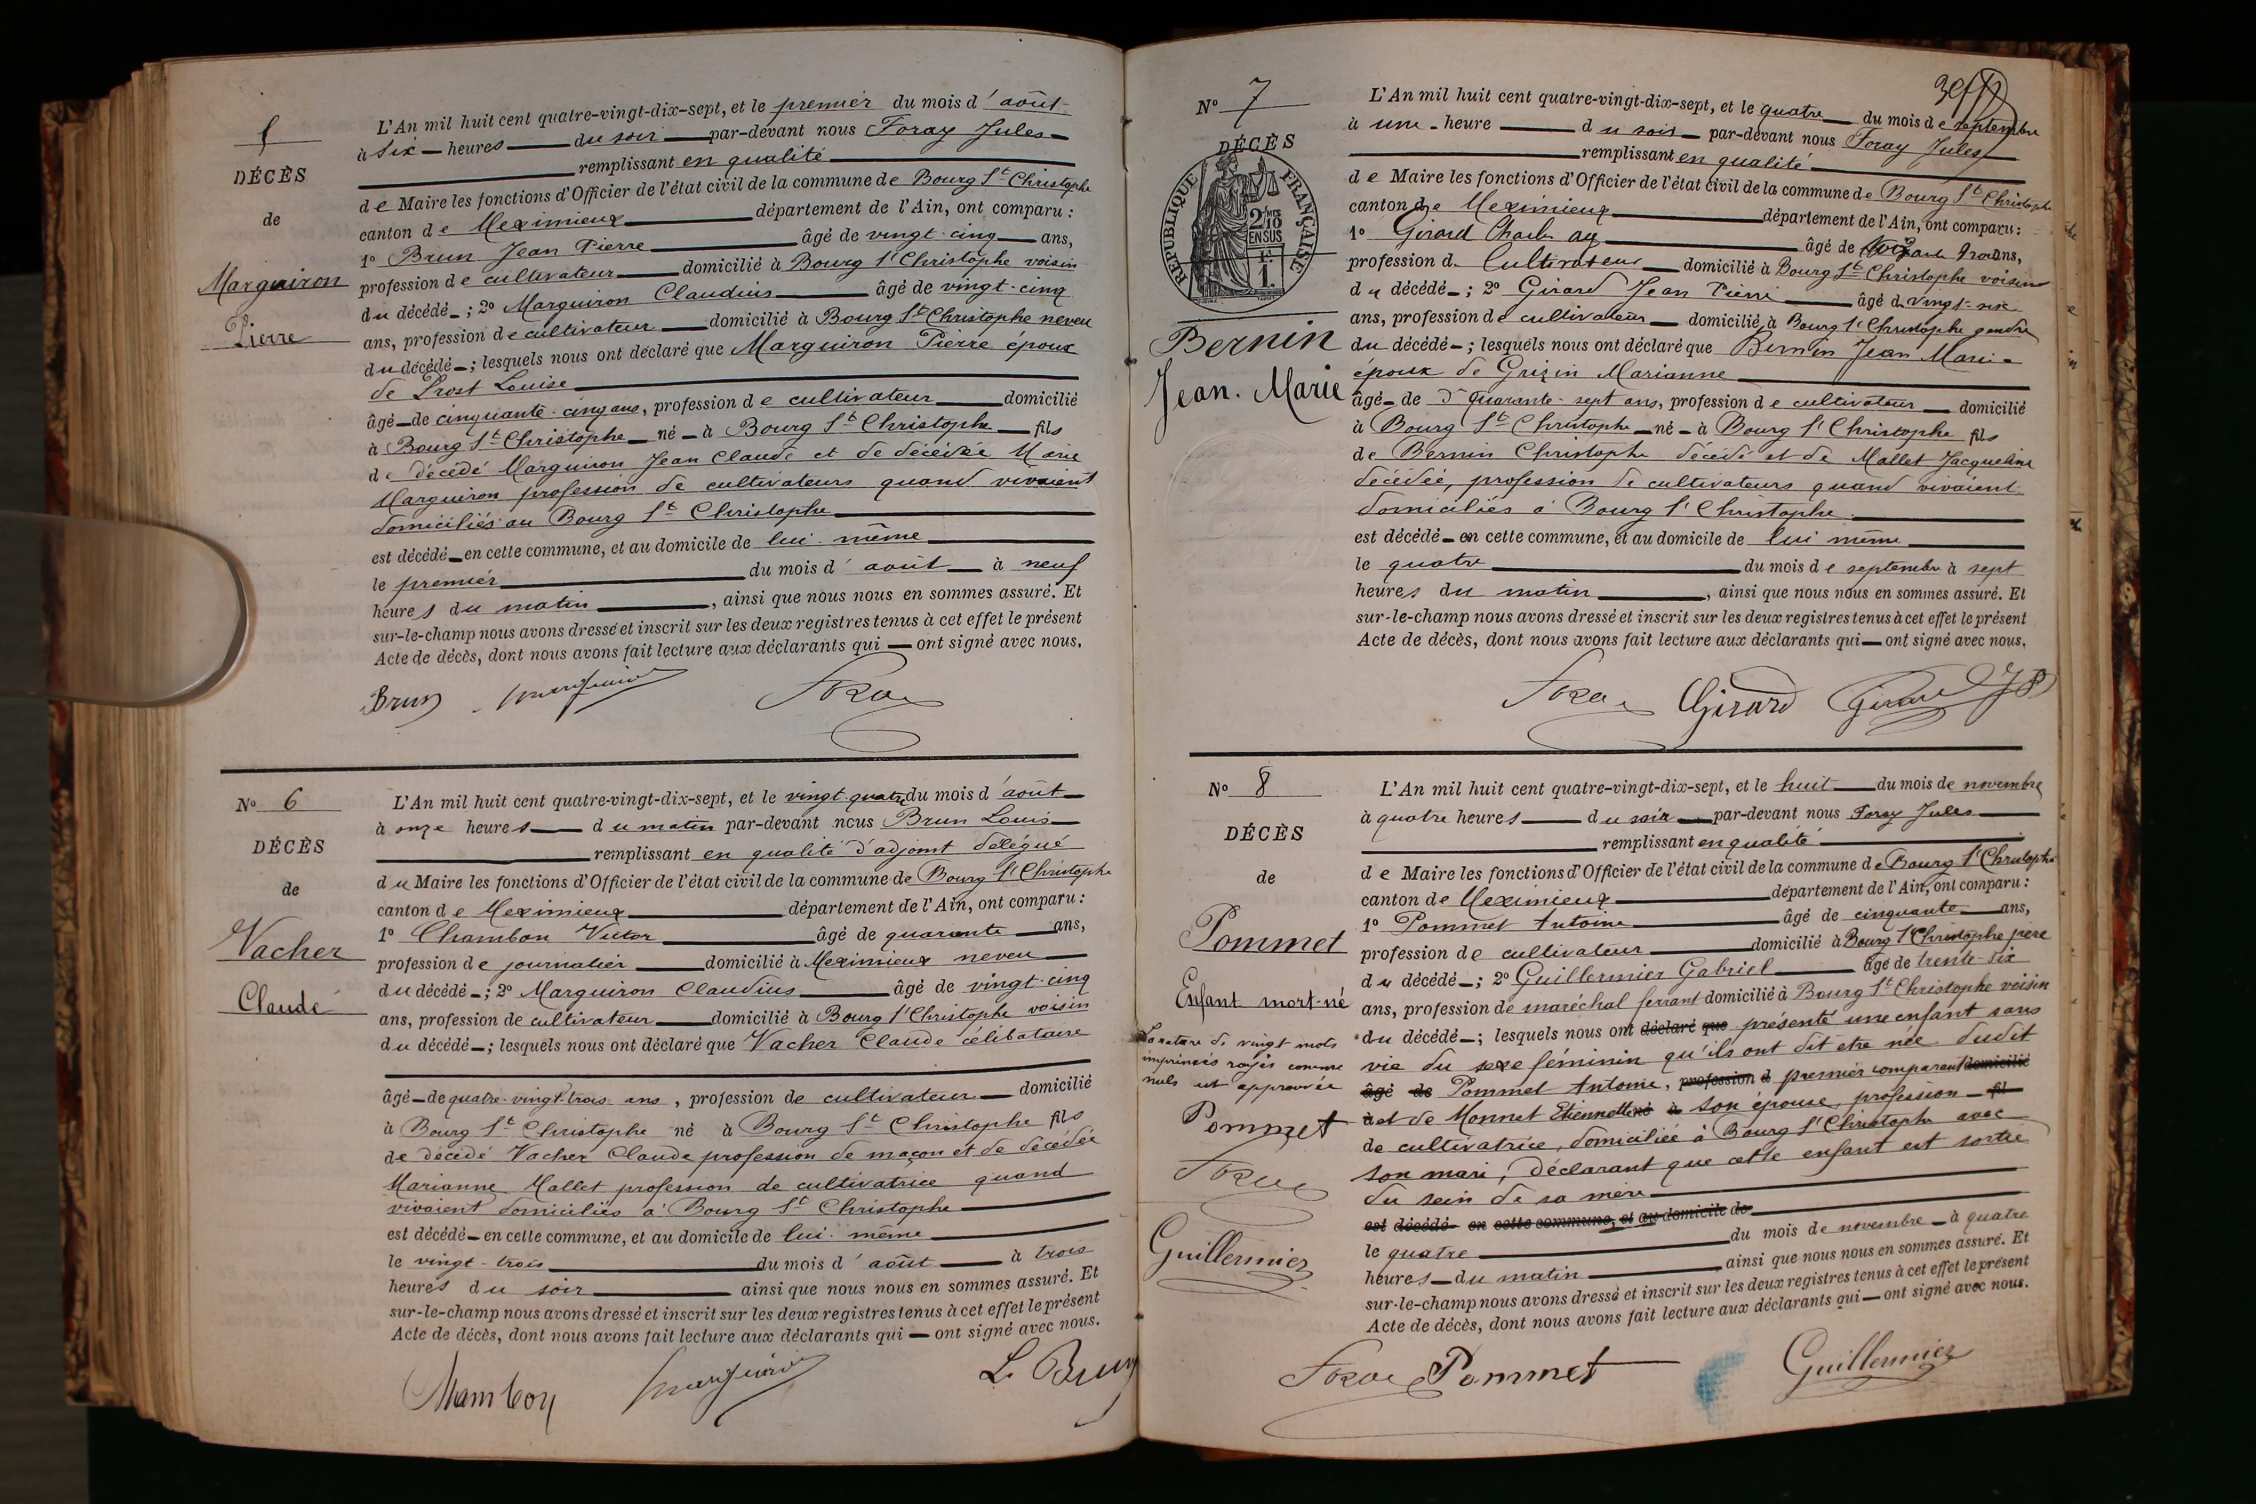 5
DÉCÈS
de
Marguiron
Pierre
L'An mil huit cent quatre-vingt-dix-sept, et le premier du mois d'août
à six heures du soir par-devant nous Foray Jules
remplissant en qualité
de Maire les fonctions d'Officier de l'état civil de la commune de Bourg St Christophe
canton de Meximieux département de l'Ain, ont comparu :
1° Brun Jean Pierre âgé de vingt-cinq ans,
profession de cultivateur domicilié à Bourg St Christophe voisin
du décédé ; 2° Marguiron Claudius âgé de vingt-cinq
ans, profession de cultivateur domicilié à Bourg St Christophe neveu
du décédé ; lesquels nous ont déclaré que Marguiron Pierre époux
de Prost Louise
âgé de cinquante-cinq ans, profession de cultivateur domicilié
à Bourg St Christophe né à Bourg St Christophe fils
de décédé Marguiron Jean Claude et de décédée Marie
Marguiron profession de cultivateurs quand vivaient
domiciliés au Bourg St Christophe
est décédé en cette commune, et au domicile de lui-même
le premier du mois d'août à neuf
heures du matin, ainsi que nous nous en sommes assuré. Et
sur-le-champ nous avons dressé et inscrit sur les deux registres tenus à cet effet le présent
Acte de décès, dont nous avons fait lecture aux déclarants qui ont signé avec nous.
Brun Foray
N° 6
DÉCÈS
de
Vacher
Claude
L'An mil huit cent quatre-vingt-dix-sept, et le vingt-quatre du mois d'août
à onze heures du matin par-devant nous Brun Louis
remplissant en qualité d'adjoint délégué
du Maire les fonctions d'Officier de l'état civil de la commune de Bourg St Christophe
canton de Meximieux département de l'Ain, ont comparu :
1° Chambon Victor âgé de quarante ans,
profession de journalier domicilié à Meximieux neveu
du décédé ; 2° Marguiron Claudius âgé de vingt-cinq
ans, profession de cultivateur domicilié à Bourg St Christophe voisin
du décédé ; lesquels nous ont déclaré que Vacher Claude célibataire
âgé de quatre-vingt-trois ans, profession de cultivateur domicilié
à Bourg St Christophe né à Bourg St Christophe fils
de décédé Vacher Claude profession de maçon et de décédée
Marianne Mallet profession de cultivatrice quand
vivaient domiciliés à Bourg St Christophe
est décédé en cette commune, et au domicile de lui-même
le vingt-trois du mois d'août à trois
heures du soir ainsi que nous nous en sommes assuré. Et
sur-le-champ nous avons dressé et inscrit sur les deux registres tenus à cet effet le présent
Acte de décès, dont nous avons fait lecture aux déclarants qui ont signé avec nous.
Chambon L. Brun
N° 7
DÉCÈS
RÉPUBLIQUE FRANÇAISE
2/10
EN SUS
1.
Bernin
Jean-Marie
L'An mil huit cent quatre-vingt-dix-sept, et le quatre du mois de septembre
à une heure du soir par-devant nous Foray Jules
remplissant en qualité
de Maire les fonctions d'Officier de l'état civil de la commune de Bourg St Christophe
canton de Meximieux département de l'Ain, ont comparu :
1° Girard Charles âgé de ans,
profession de Cultivateur domicilié à Bourg St Christophe voisin
du décédé ; 2° Girard Jean Pierre âgé de vingt-six
ans, profession de cultivateur domicilié à Bourg St Christophe gendre
du décédé ; lesquels nous ont déclaré que Bernin Jean Marie
époux de Grizin Marianne
âgé de quarante-sept ans, profession de cultivateur domicilié
à Bourg St Christophe né à Bourg St Christophe fils
de Bernin Christophe décédé et de Mallet Jacqueline
décédée, profession de cultivateurs quand vivaient
domiciliés à Bourg St Christophe
est décédé en cette commune, et au domicile de lui même
le quatre du mois de septembre à sept
heures du matin, ainsi que nous nous en sommes assuré. Et
sur-le-champ nous avons dressé et inscrit sur les deux registres tenus à cet effet le présent
Acte de décès, dont nous avons fait lecture aux déclarants qui ont signé avec nous.
Foray Girard Girard JP
N° 8
DÉCÈS
de
Pommet
Enfant mort-né
La rature de vingt mots
imprimés rayés comme
nuls est approuvée
Pommet
Foray
Guillermier
L'An mil huit cent quatre-vingt-dix-sept, et le huit du mois de novembre
à quatre heures du soir par-devant nous Foray Jules
remplissant en qualité
de Maire les fonctions d'Officier de l'état civil de la commune de Bourg St Christophe
canton de Meximieux département de l'Ain, ont comparu :
1° Pommet Antoine âgé de cinquante ans,
profession de cultivateur domicilié à Bourg St Christophe père
du décédé ; 2° Guillermier Gabriel âgé de trente-six
ans, profession de maréchal ferrant domicilié à Bourg St Christophe voisin
du décédé ; lesquels nous ont déclaré que présenté une enfant sans
vie du sexe féminin qu'ils ont dit etre née dudit
âgé de Pommet Antoine, profession d premier comparant domicilié
à et de Monnet Etiennette né à son épouse, profession fil
de cultivatrice, domiciliée à Bourg St Christophe avec
son mari, déclarant que cette enfant est sortie
du sein de sa mère
est décédé en cette commune, et au domicile de
le quatre du mois de novembre à quatre
heures du matin ainsi que nous nous en sommes assuré. Et
sur-le-champ nous avons dressé et inscrit sur les deux registres tenus à cet effet le présent
Acte de décès, dont nous avons fait lecture aux déclarants qui ont signé avec nous.
Foray Pommet Guillermier